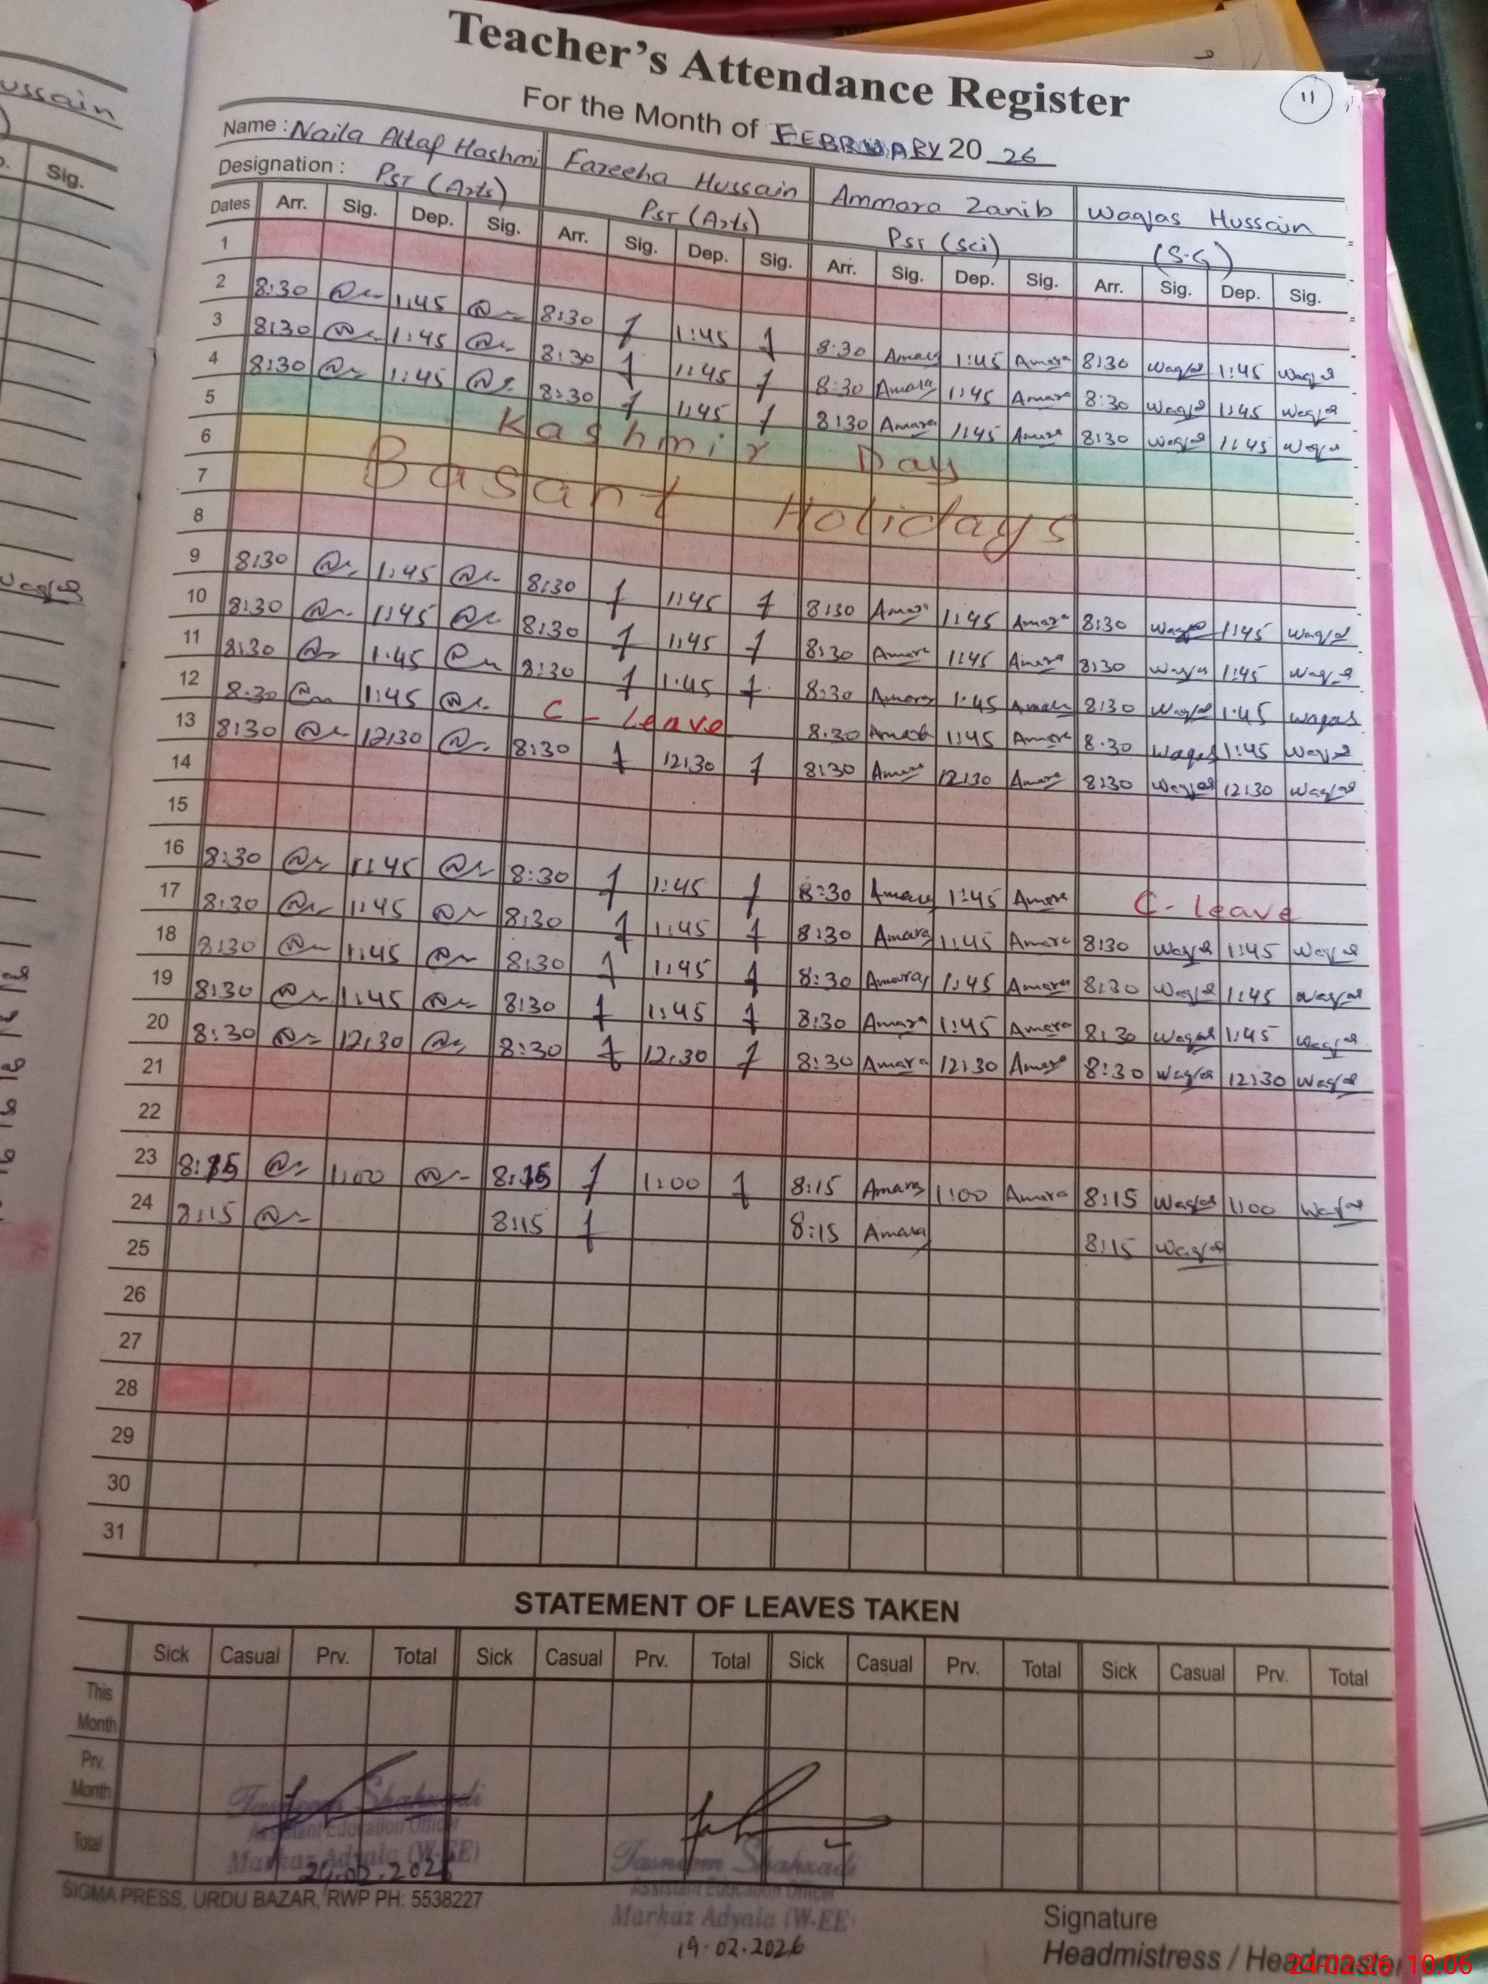 Teacher's Attendance Register
11
For the Month of FEBRUARY 20 26
Name : Naila Altaf Hashmi Fareeha Hussain Ammara Zanib Waqlas Hussain
Designation : PST (Arts) PST (Arts) PST (Sci) (S.G)
Dates Arr. Sig. Dep. Sig. Arr. Sig. Dep. Sig. Arr. Sig. Dep. Sig. Arr. Sig. Dep. Sig.
1
2 8:30 1:45 8:30 1:45 8:30 Amara 1:45 Amara 8:30 Waqlas 1:45 Waqlas
3 8:30 1:45 8:30 1:45 8:30 Amara 1:45 Amara 8:30 Waqlas 1:45 Waqlas
4 8:30 1:45 8:30 1:45 8:30 Amara 1:45 Amara 8:30 Waqlas 1:45 Waqlas
5 Kashmir Day
6 Basant Holidays
7
8
9 8:30 1:45 8:30 1:45 8:30 Amara 1:45 Amara 8:30 Waqlas 1:45 Waqlas
10 8:30 1:45 8:30 1:45 8:30 Amara 1:45 Amara 8:30 Waqlas 1:45 Waqlas
11 8:30 1:45 8:30 1:45 8:30 Amara 1:45 Amara 8:30 Waqlas 1:45 Waqas
12 8:30 1:45 C - Leave 8:30 Amara 1:45 Amara 8:30 Waqas 1:45 Waqlas
13 8:30 12:30 8:30 12:30 8:30 Amara 12:30 Amara 8:30 Waqlas 12:30 Waqlas
14
15
16 8:30 1:45 8:30 1:45 8:30 Amara 1:45 Amara C - Leave
17 8:30 1:45 8:30 1:45 8:30 Amara 1:45 Amara 8:30 Waqlas 1:45 Waqlas
18 8:30 1:45 8:30 1:45 8:30 Amara 1:45 Amara 8:30 Waqlas 1:45 Waqlas
19 8:30 1:45 8:30 1:45 8:30 Amara 1:45 Amara 8:30 Waqlas 1:45 Waqlas
20 8:30 12:30 8:30 12:30 8:30 Amara 12:30 Amara 8:30 Waqlas 12:30 Waqlas
21
22
23 8:15 1:00 8:15 1:00 8:15 Amara 1:00 Amara 8:15 Waqlas 1:00 Waqlas
24 8:15 8:15 8:15 Amara 8:15 Waqlas
25
26
27
28
29
30
31
STATEMENT OF LEAVES TAKEN
Sick Casual Prv. Total Sick Casual Prv. Total Sick Casual Prv. Total Sick Casual Prv. Total
This Month
Prv. Month
Total
Tasneem Shahzadi
Assistant Education Officer
Markaz Adyala (W-EE)
24.02.2026
Tasneem Shahzadi
Assistant Education Officer
Markaz Adyala (W-EE)
19.02.2026
SIGMA PRESS, URDU BAZAR, RWP PH: 5538227
Signature
Headmistress / Headmaster
24-02-26 10:06
ussain
Sig.
Waqlas